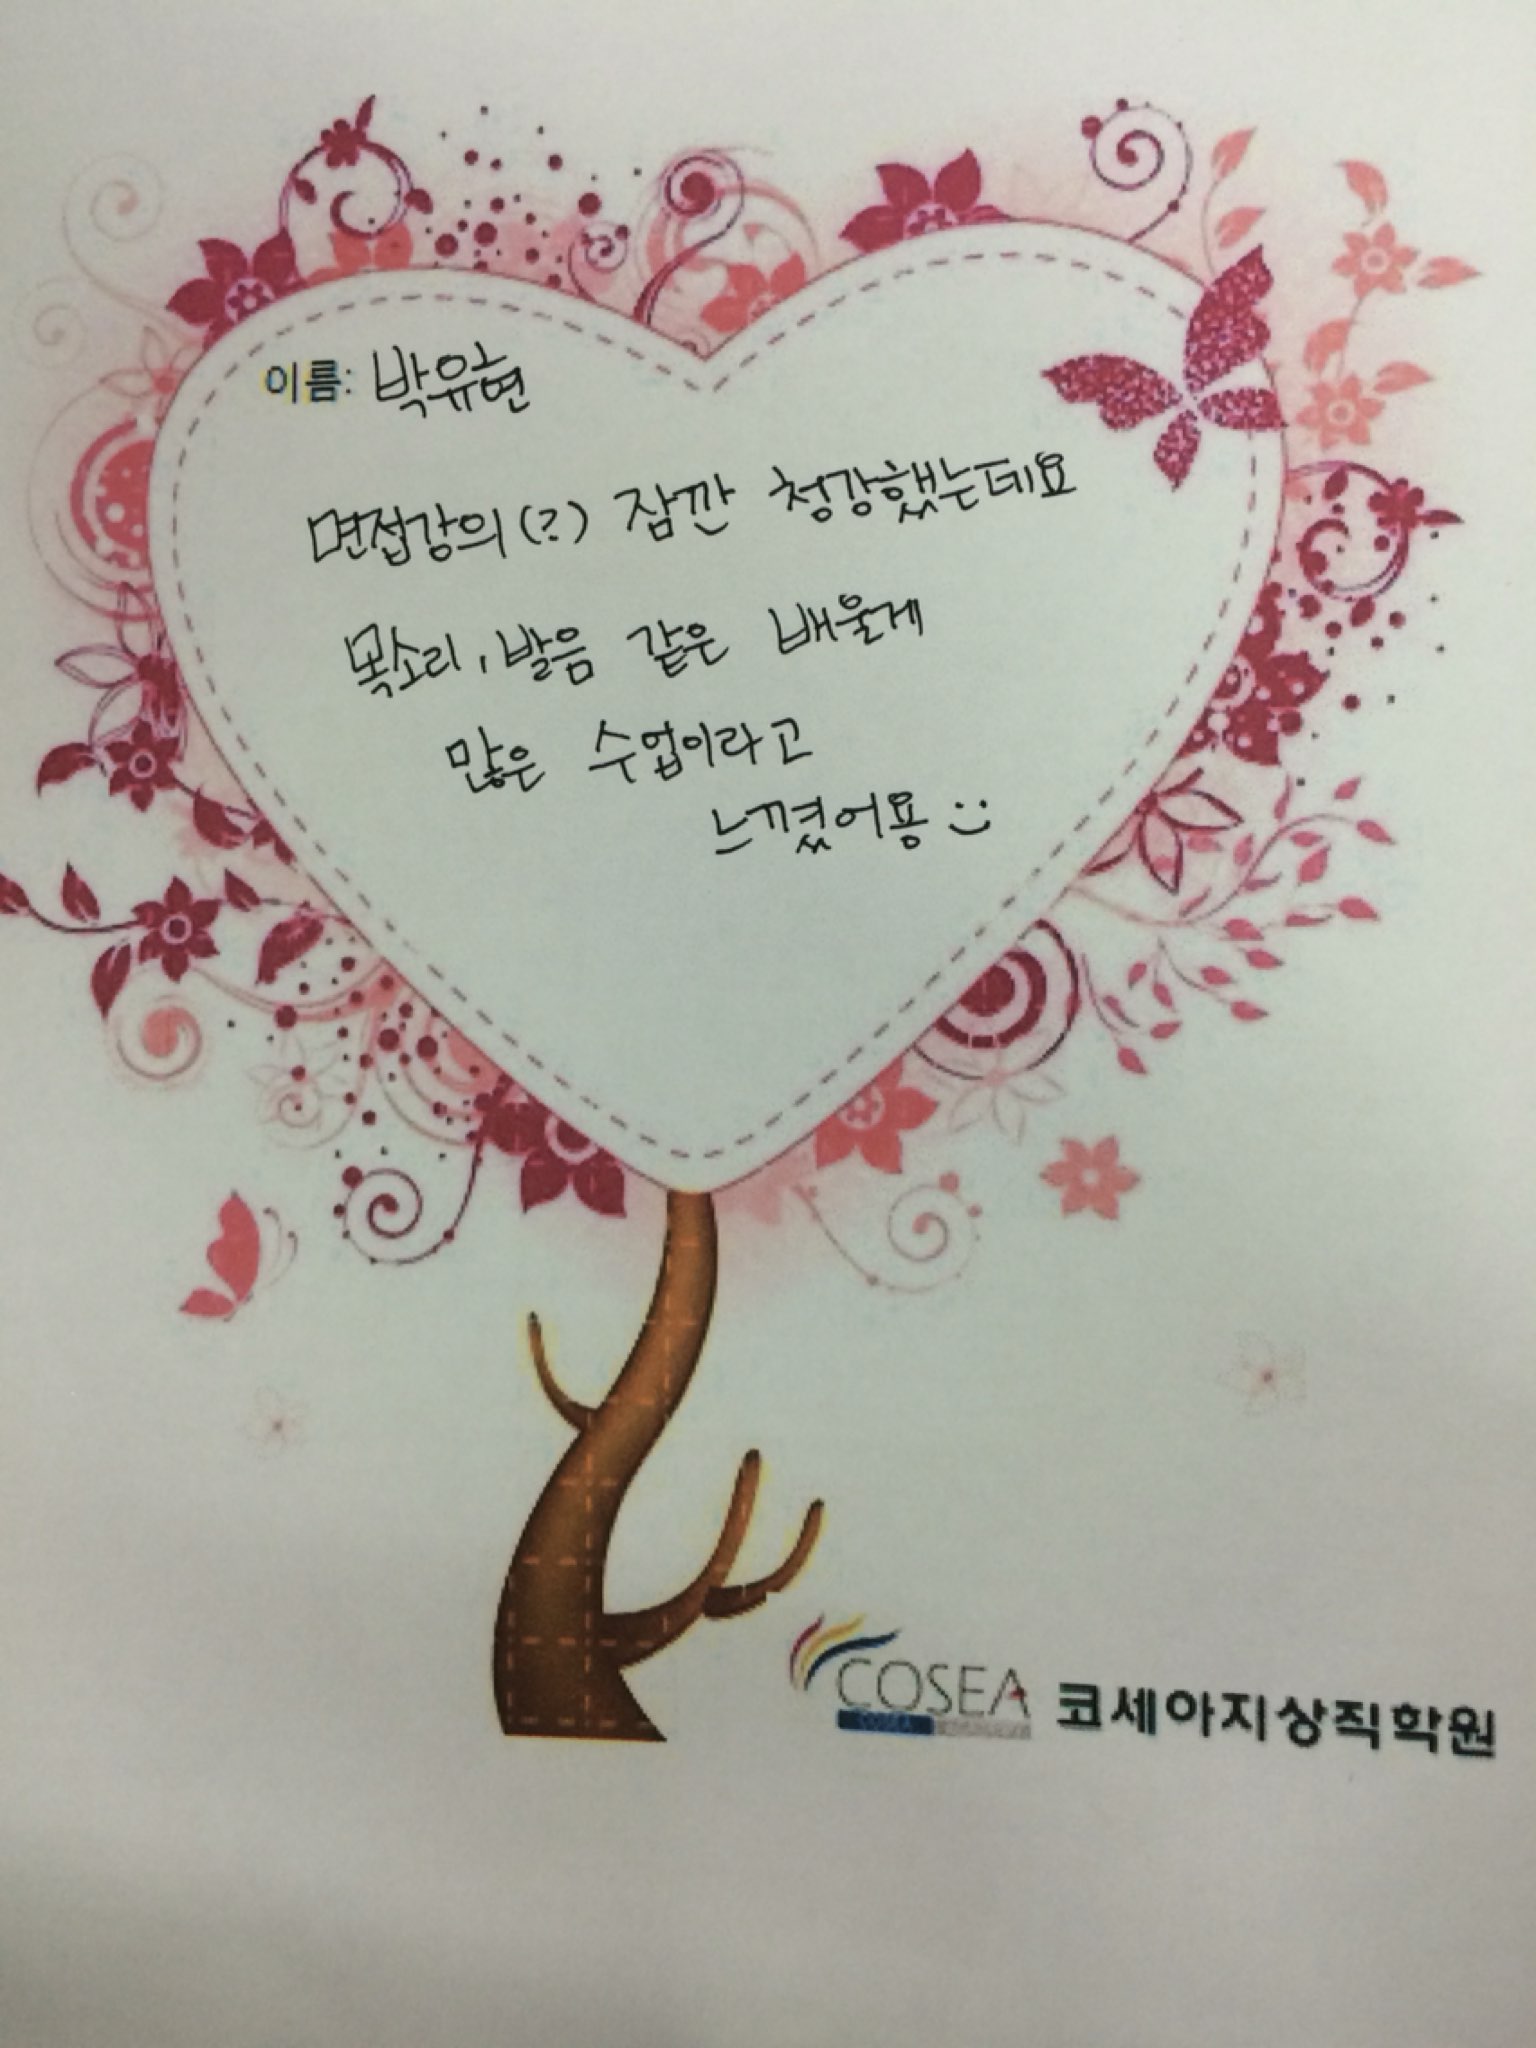 이름: 박유현
면접강의(?) 잠깐 청강했는데요
목소리, 발음 같은 배울게
많은 수업이라고
느꼈어용 :)
COSEA 코세아지상직학원